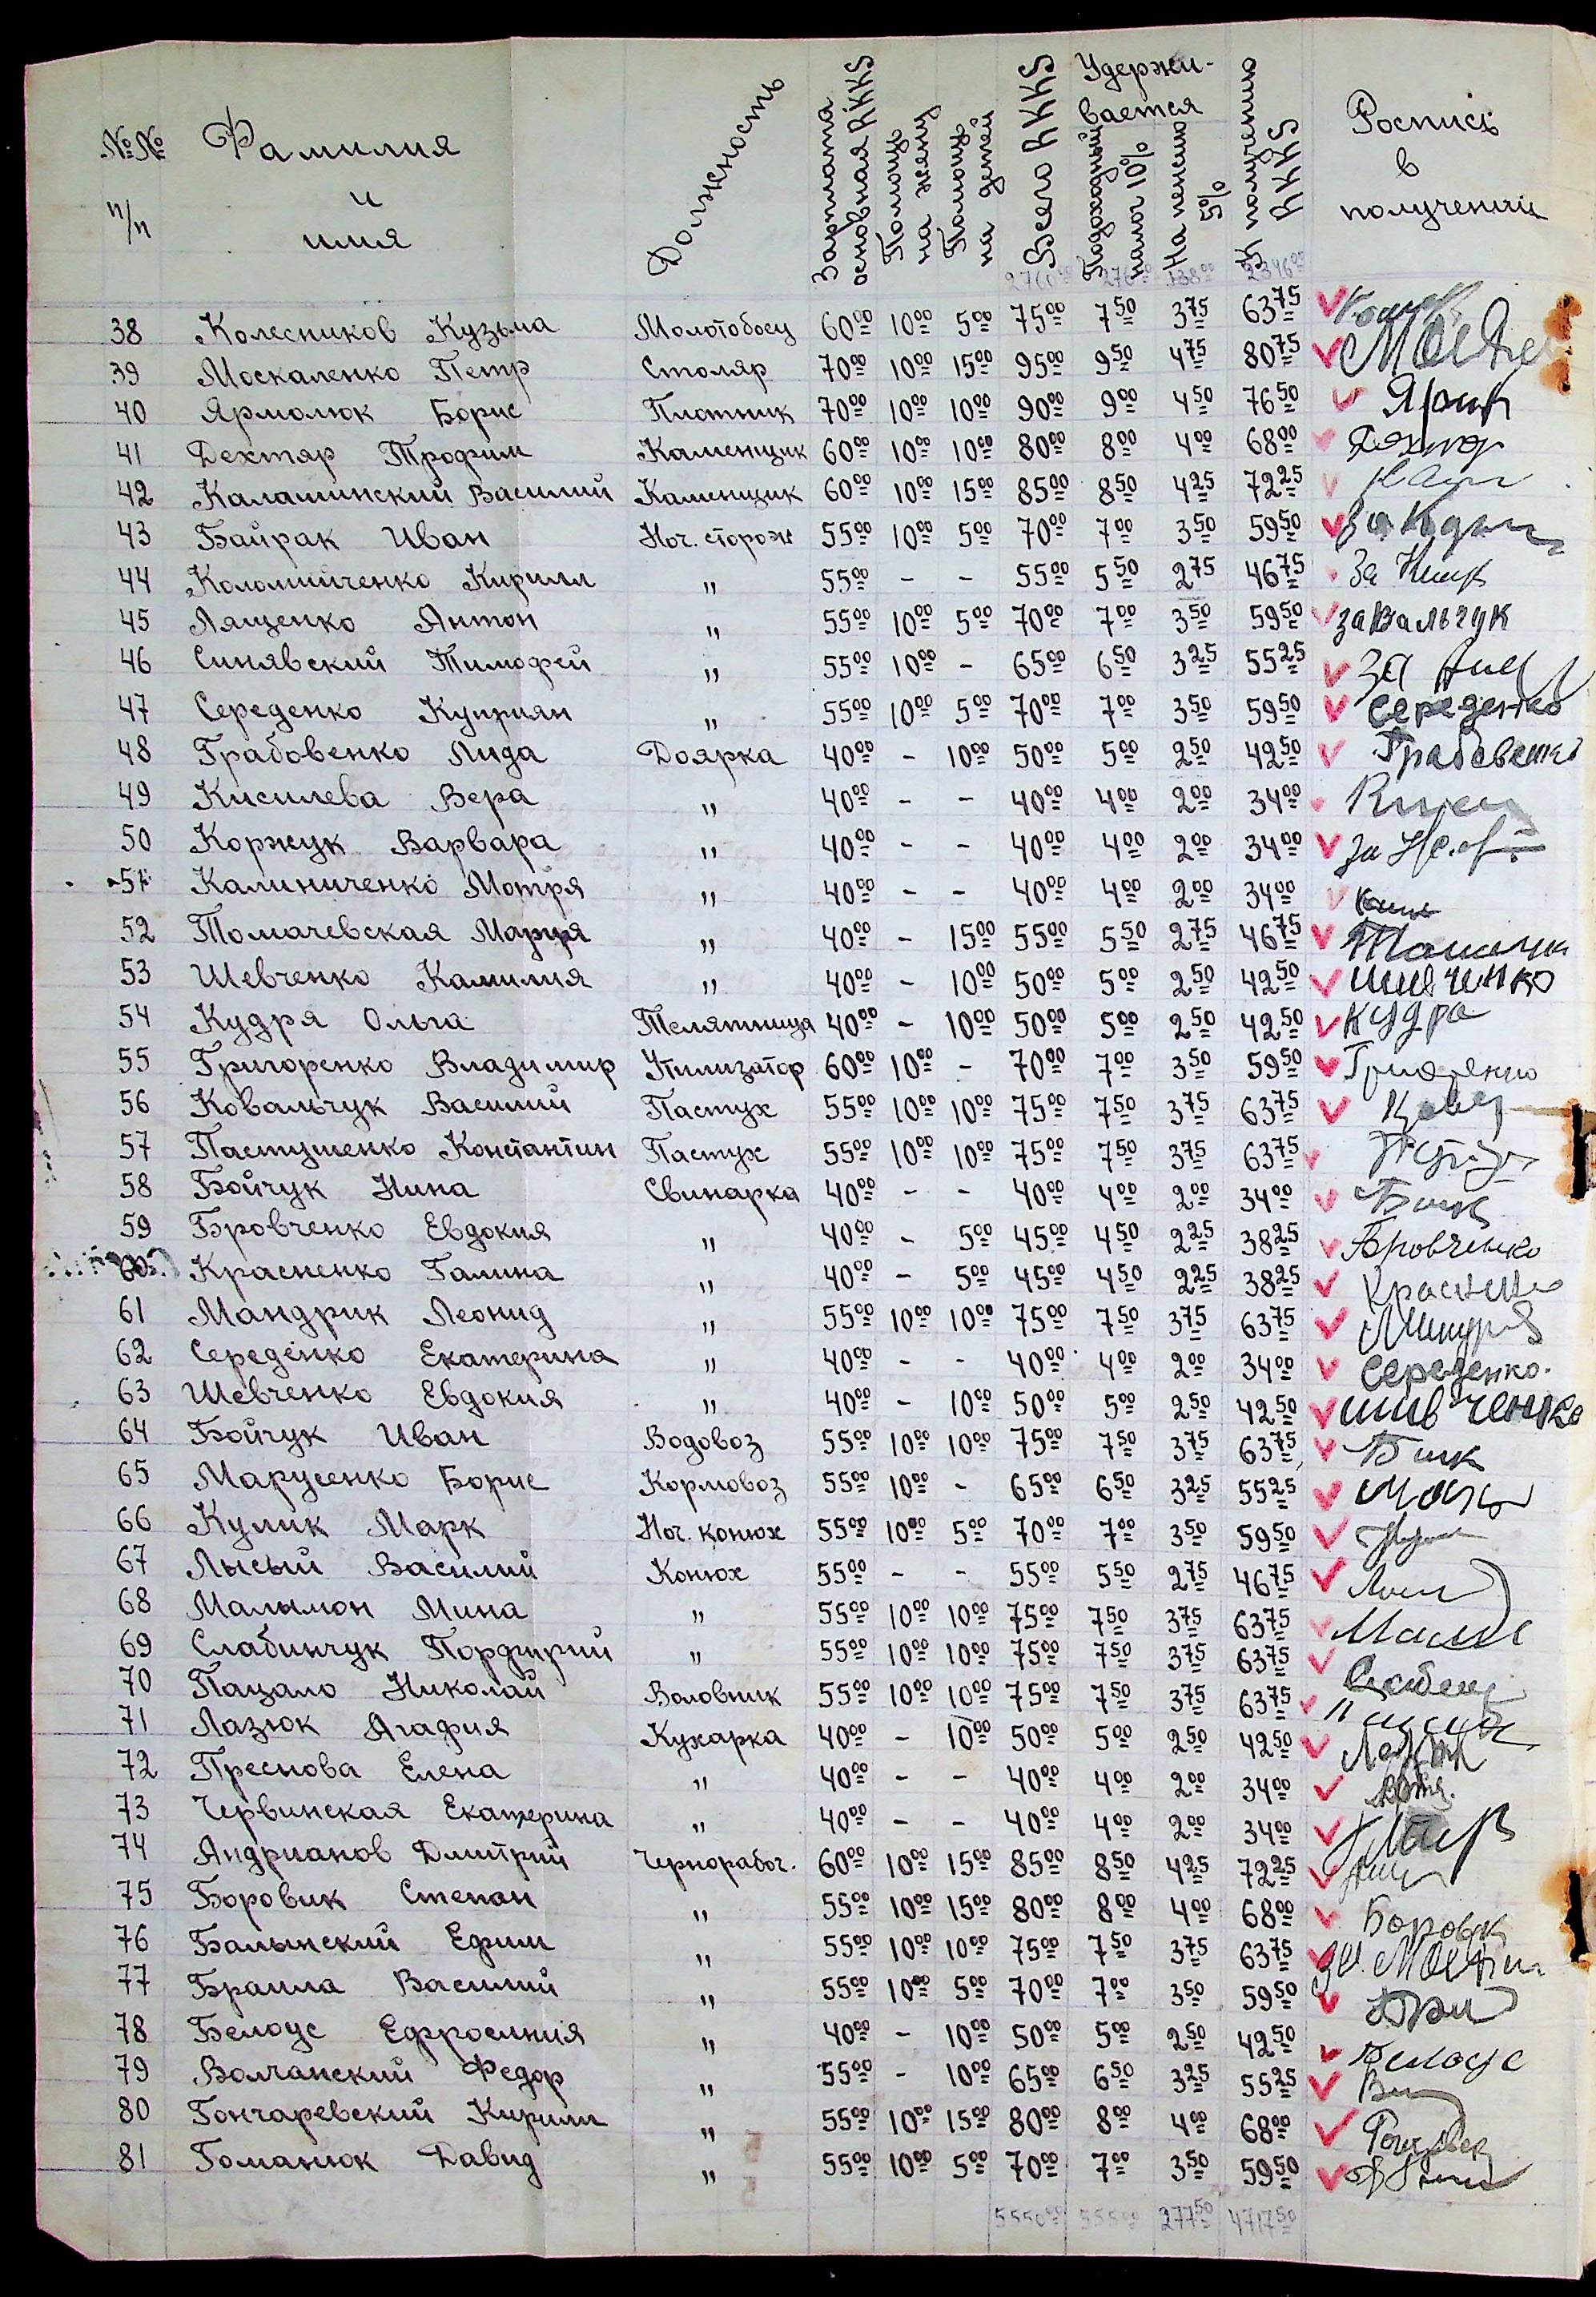 №№ п/п Фамилия и имия Должность Зарплата основная RKKS Помощь на жену Помощь на детей Всего RKKS Удерживается Подоходный налог 10% На пенсию 5% К получению RKKS Роспись в получений
2760⁰⁰ 276⁰⁰ 138⁰⁰ 2346⁰⁰
38 Колесников Кузьма Молотобоец 60⁰⁰ 10⁰⁰ 5⁰⁰ 75⁰⁰ 7⁵⁰ 3⁷⁵ 63⁷⁵
39 Москаленко Петр Столяр 70⁰⁰ 10⁰⁰ 15⁰⁰ 95⁰⁰ 9⁵⁰ 4⁷⁵ 80⁷⁵
40 Ярмолюк Борис Плотник 70⁰⁰ 10⁰⁰ 10⁰⁰ 90⁰⁰ 9⁰⁰ 4⁵⁰ 76⁵⁰
41 Дехтяр Трофим Каменщик 60⁰⁰ 10⁰⁰ 10⁰⁰ 80⁰⁰ 8⁰⁰ 4⁰⁰ 68⁰⁰
42 Калашинский Василий Каменщик 60⁰⁰ 10⁰⁰ 15⁰⁰ 85⁰⁰ 8⁵⁰ 4²⁵ 72²⁵
43 Байрак Иван Ноч. сторож 55⁰⁰ 10⁰⁰ 5⁰⁰ 70⁰⁰ 7⁰⁰ 3⁵⁰ 59⁵⁰
44 Коломийченко Кирилл " 55⁰⁰ - - 55⁰⁰ 5⁵⁰ 2⁷⁵ 46⁷⁵ За
45 Лященко Антон " 55⁰⁰ 10⁰⁰ 5⁰⁰ 70⁰⁰ 7⁰⁰ 3⁵⁰ 59⁵⁰ за Вальчук
46 Синявский Тимофей " 55⁰⁰ 10⁰⁰ - 65⁰⁰ 6⁵⁰ 3²⁵ 55²⁵ За
47 Середенко Куприян " 55⁰⁰ 10⁰⁰ 5⁰⁰ 70⁰⁰ 7⁰⁰ 3⁵⁰ 59⁵⁰ Середенко
48 Грабовенко Лида Доярка 40⁰⁰ - 10⁰⁰ 50⁰⁰ 5⁰⁰ 2⁵⁰ 42⁵⁰
49 Кисилева Вера " 40⁰⁰ - - 40⁰⁰ 4⁰⁰ 2⁰⁰ 34⁰⁰
50 Коржук Варвара " 40⁰⁰ - - 40⁰⁰ 4⁰⁰ 2⁰⁰ 34⁰⁰ за
51 Калиниченко Мотря " 40⁰⁰ - - 40⁰⁰ 4⁰⁰ 2⁰⁰ 34⁰⁰
52 Томачевская Мария " 40⁰⁰ - 15⁰⁰ 55⁰⁰ 5⁵⁰ 2⁷⁵ 46⁷⁵
53 Шевченко Камилия " 40⁰⁰ - 10⁰⁰ 50⁰⁰ 5⁰⁰ 2⁵⁰ 42⁵⁰ шивченко
54 Кудря Ольга Телятница 40⁰⁰ - 10⁰⁰ 50⁰⁰ 5⁰⁰ 2⁵⁰ 42⁵⁰ Кудра
55 Григоренко Владимир Утилизатор 60⁰⁰ 10⁰⁰ - 70⁰⁰ 7⁰⁰ 3⁵⁰ 59⁵⁰
56 Ковальчук Василий Пастух 55⁰⁰ 10⁰⁰ 10⁰⁰ 75⁰⁰ 7⁵⁰ 3⁷⁵ 63⁷⁵
57 Пастушенко Константин Пастух 55⁰⁰ 10⁰⁰ 10⁰⁰ 75⁰⁰ 7⁵⁰ 3⁷⁵ 63⁷⁵
58 Бойчук Нина Свинарка 40⁰⁰ - - 40⁰⁰ 4⁰⁰ 2⁰⁰ 34⁰⁰
59 Бровченко Евдокия " 40⁰⁰ - 5⁰⁰ 45⁰⁰ 4⁵⁰ 2²⁵ 38²⁵ Бровченко
60 Красненко Галина " 40⁰⁰ - 5⁰⁰ 45⁰⁰ 4⁵⁰ 2²⁵ 38²⁵
61 Мандрик Леонид " 55⁰⁰ 10⁰⁰ 10⁰⁰ 75⁰⁰ 7⁵⁰ 3⁷⁵ 63⁷⁵
62 Середенко Екатерина " 40⁰⁰ - - 40⁰⁰ 4⁰⁰ 2⁰⁰ 34⁰⁰ Середенко.
63 Шевченко Евдокия " 40⁰⁰ - 10⁰⁰ 50⁰⁰ 5⁰⁰ 2⁵⁰ 42⁵⁰ шивченко
64 Бойчук Иван Водовоз 55⁰⁰ 10⁰⁰ 10⁰⁰ 75⁰⁰ 7⁵⁰ 3⁷⁵ 63⁷⁵
65 Марусенко Борис Кормовоз 55⁰⁰ 10⁰⁰ - 65⁰⁰ 6⁵⁰ 3²⁵ 55²⁵
66 Кулик Марк Ноч. конюх 55⁰⁰ 10⁰⁰ 5⁰⁰ 70⁰⁰ 7⁰⁰ 3⁵⁰ 59⁵⁰
67 Лысый Василий Конюх 55⁰⁰ - - 55⁰⁰ 5⁵⁰ 2⁷⁵ 46⁷⁵
68 Малымон Мина " 55⁰⁰ 10⁰⁰ 10⁰⁰ 75⁰⁰ 7⁵⁰ 3⁷⁵ 63⁷⁵
69 Слабинчук Порфирий " 55⁰⁰ 10⁰⁰ 10⁰⁰ 75⁰⁰ 7⁵⁰ 3⁷⁵ 63⁷⁵
70 Пацало Николай Воловник 55⁰⁰ 10⁰⁰ 10⁰⁰ 75⁰⁰ 7⁵⁰ 3⁷⁵ 63⁷⁵
71 Лазюк Агафия Кухарка 40⁰⁰ - 10⁰⁰ 50⁰⁰ 5⁰⁰ 2⁵⁰ 42⁵⁰
72 Преснова Елена " 40⁰⁰ - - 40⁰⁰ 4⁰⁰ 2⁰⁰ 34⁰⁰
73 Червинская Екатерина " 40⁰⁰ - - 40⁰⁰ 4⁰⁰ 2⁰⁰ 34⁰⁰
74 Андрианов Дмитрий Чернорабоч. 60⁰⁰ 10⁰⁰ 15⁰⁰ 85⁰⁰ 8⁵⁰ 4²⁵ 72²⁵
75 Боровик Степан " 55⁰⁰ 10⁰⁰ 15⁰⁰ 80⁰⁰ 8⁰⁰ 4⁰⁰ 68⁰⁰ Боровик
76 Балынский Ефим " 55⁰⁰ 10⁰⁰ 10⁰⁰ 75⁰⁰ 7⁵⁰ 3⁷⁵ 63⁷⁵
77 Браила Василий " 55⁰⁰ 10⁰⁰ 5⁰⁰ 70⁰⁰ 7⁰⁰ 3⁵⁰ 59⁵⁰
78 Белоус Ефросиния " 40⁰⁰ - 10⁰⁰ 50⁰⁰ 5⁰⁰ 2⁵⁰ 42⁵⁰ Билоус
79 Волчанский Федор " 55⁰⁰ - 10⁰⁰ 65⁰⁰ 6⁵⁰ 3²⁵ 55²⁵
80 Гончаревский Кирилл " 55⁰⁰ 10⁰⁰ 15⁰⁰ 80⁰⁰ 8⁰⁰ 4⁰⁰ 68⁰⁰
81 Гоманюк Давид " 55⁰⁰ 10⁰⁰ 5⁰⁰ 70⁰⁰ 7⁰⁰ 3⁵⁰ 59⁵⁰
5550⁰⁰ 555⁰⁰ 277⁵⁰ 4717⁵⁰